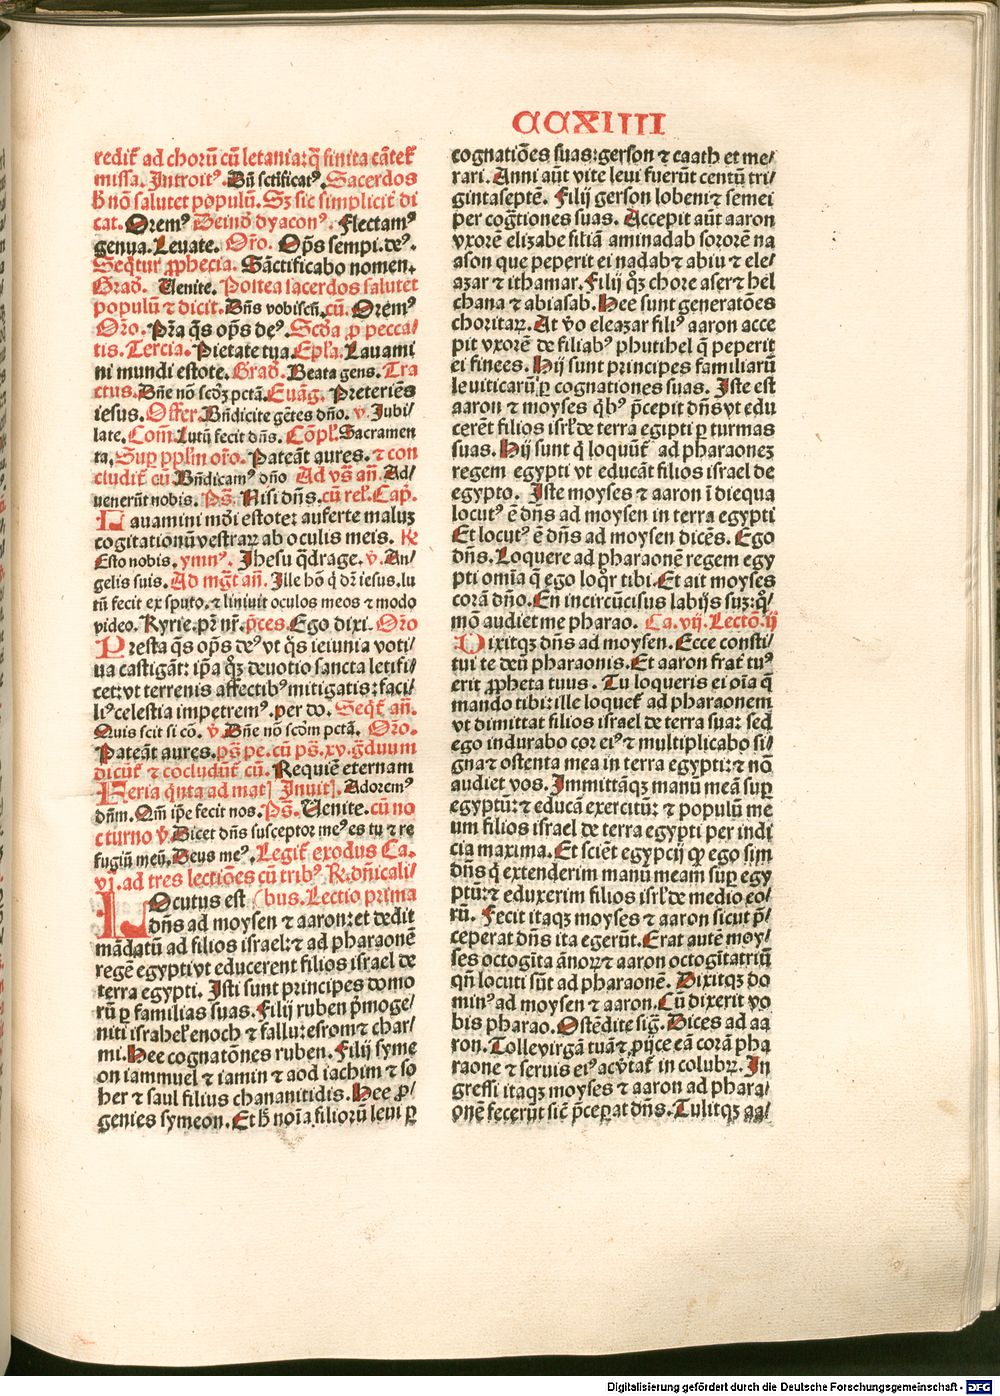 CCXIIII
redit̄ ad chorū cū letania: q̄ finita cātet̄
missa. Introitꝰ. Dn̄ sctificatꝰ. Sacerdos
h̄ nō salutet populū. Sꝫ sic simplicit̄ di
cat. Oremꝰ Deinď dyaconꝰ. Flectamꝰ
genua. Leuate. Oro. Op̄s sempi. deꝰ.
Seq̄tur ꝓphecia. Sāctificabo nomen.
Grad. Venite. Postea sacerdos salutet
populū ⁊ dicit. Dn̄s vobiscū. cū. Oremꝰ
Oro. Pr̄a q̄s op̄s deꝰ. Scd̄a ꝓ pecca/
tis. Tercia. Pietate tua. Epl̄a. Lauami
ni mundi estote. Grad. Beata gens. Tra
ctus. Dn̄e nō scd̄ꝫ pctā. Euāg. Preteriēs
iesus. Offer. Bn̄dicite gētes dn̄o. v. Iubi
late. Com̄. Lutū fecit dn̄s. Cōpl̄. Sacramen
ta. Suꝑ pplm̄ oro. Pateāt aures. ⁊ con
cludit̄ cū Bn̄dicamꝰ dn̄o Ad vs̄ an̄. Ad/
uenerūt nobis. Ps̄. Nisi dn̄s. cū rel̄. Cap̄.
Lauamini mūdi estote: auferte malum
cogitationū vestraꝝ ab oculis meis. R̄
Esto nobis. ymnꝰ. Ihesu q̄drage. v. An/
gelis suis. Ad mḡt an̄. Ille hō q̄ dr̄ iesus. lu
tū fecit ex sputo. ⁊ liniuit oculos meos ⁊ modo
video. Kyrie. pr̄ nr̄. p̄ces. Ego dixi. Oro
Presta q̄s op̄s deꝰ vt q̄s ieiunia voti/
ua castigāt: ip̄a q̄ꝫ deuotio sancta letifi/
cet: vt terrenis affectibꝰ mitigatis: faci/
liꝰ celestia impetremꝰ. per do. Seq̄t̄ an̄.
Quis scit si cō. v. Dn̄e nō scd̄m pctā. Oro.
Pateāt aures. ps̄ pe. cū ps̄. xv. ḡduum
dicūt̄ ⁊ cōcludūt̄ cū. Requiē eternam
Feria q̄nta ad mat̄ Inuit̄. Adoremꝰ
dn̄m. Qm̄ ip̄e fecit nos. Ps̄. Venite. cū no
cturno v. Dicet dn̄s susceptor meꝰ es tu ⁊ re
fugiū meū. Deus meꝰ. Legit̄ exodus Ca.
vi. ad tres lectiōes cū tribꝰ. R. dn̄icali/
bus. Lectio prima
Locutus est
dn̄s ad moysen ⁊ aaron: et dedit
mādatū ad filios israel: ⁊ ad pharaonē
regē egypti vt educerent filios israel de
terra egypti. Isti sunt principes domo
rū ꝑ familias suas. Filij ruben p̄moge/
niti israhel: enoch ⁊ fallu: esrom ⁊ char/
mi. Hee cognatōnes ruben. Filij syme
on iammuel ⁊ iamin ⁊ aod iachim ⁊ so
her ⁊ saul filius chananitidis. Hee ꝓ/
genies symeon. Et h̄ noīa filiorū leui ꝑ
cognatiōes suas: gerson ⁊ caath et me/
rari. Anni aūt vite leui fuerūt centū tri/
gintaseptē. Filij gerson lobeni ⁊ semei
per coḡtiones suas. Accepit aūt aaron
vxorē elizabe filiā aminadab sororē na
ason que peperit ei nadab ⁊ abiu ⁊ ele/
azar ⁊ ithamar. Filij q̄ꝫ chore aser ⁊ hel
chana ⁊ abiasab. Hee sunt generatōes
choritaꝝ. At v̄o eleazar filiꝰ aaron acce
pit vxorē de filiabꝰ phutihel q̄ peperit
ei finees. Hij sunt principes familiarū
leuiticarū ꝑ cognationes suas. Iste est
aaron ⁊ moyses q̄bꝰ p̄cepit dn̄s vt edu
cerēt filios isrl̄ de terra egipti ꝑ turmas
suas. Hij sunt q̄ loquūt̄ ad pharaonez
regem egypti vt educāt filios israel de
egypto. Iste moyses ⁊ aaron ī die qua
locutꝰ ē dn̄s ad moysen in terra egypti
Et locutꝰ ē dn̄s ad moysen dicēs. Ego
dn̄s. Loquere ad pharaonē regem egy
pti omīa q̄ ego loq̄r tibi. Et ait moyses
corā dn̄o. En incircūcisus labijs suꝫ: q̄/
mō audiet me pharao. Ca. vij. Lectō. ij
Dixitqꝫ dn̄s ad moysen. Ecce consti/
tui te deū pharaonis. Et aaron frat̄ tuꝰ
erit ꝓpheta tuus. Tu loqueris ei oīa q̄
mando tibi: ille loquet̄ ad pharaonem
vt dimittat filios israel de terra sua: sed
ego indurabo cor eiꝰ ⁊ multiplicabo si/
gna ⁊ ostenta mea in terra egypti: ⁊ nō
audiet vos. Immittāqꝫ manū meā suꝑ
egyptū: ⁊ educā exercitū: ⁊ populū me
um filios israel de terra egypti per iudi
cia maxima. Et sciēt egypcij ꝙ ego sim
dn̄s q̄ extenderim manū meam suꝑ egy
ptū: ⁊ eduxerim filios isrl̄ de medio eo/
rū. Fecit itaqꝫ moyses ⁊ aaron sicut p̄/
ceperat dn̄s ita egerūt. Erat autē moy/
ses octogīta ānoꝝ ⁊ aaron octogītatriū
qn̄ locuti sūt ad pharaonē. Dixitqꝫ do
minꝰ ad moysen ⁊ aaron. Cū dixerit vo
bis pharao. Ostēdite siḡ. Dices ad aa
ron. Tolle virgā tuā ⁊ ꝓijce eā corā pha
raone ⁊ seruis eiꝰ ac v̄tat̄ in colubꝝ. In
gressi itaqꝫ moyses ⁊ aaron ad phara/
onē fecerūt sic̄ p̄ceꝑat dn̄s. Tulitqꝫ aa/
Digitalisierung gefördert durch die Deutsche Forschungsgemeinschaft - DFG